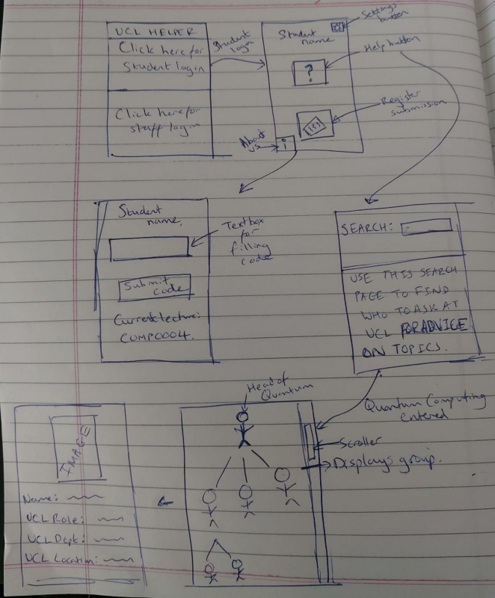 UCL HELPER
Click here for
Student login
Click here for
staff login
Student
login
Student
name
Settings
button
Help button
?
Register
submission
About
us
i
Student
name
Textbox
for
filling
code
Submit
code
Current lecture:
COMP0004.
SEARCH:
USE THIS SEARCH
PAGE TO FIND
WHO TO ASK AT
UCL FOR ADVICE
ON TOPICS.
Quantum Computing
entered
Head of
Quantum
Scroller
Displays group.
IMAGE
Name:
UCL Role:
UCL Dept:
UCL Location: